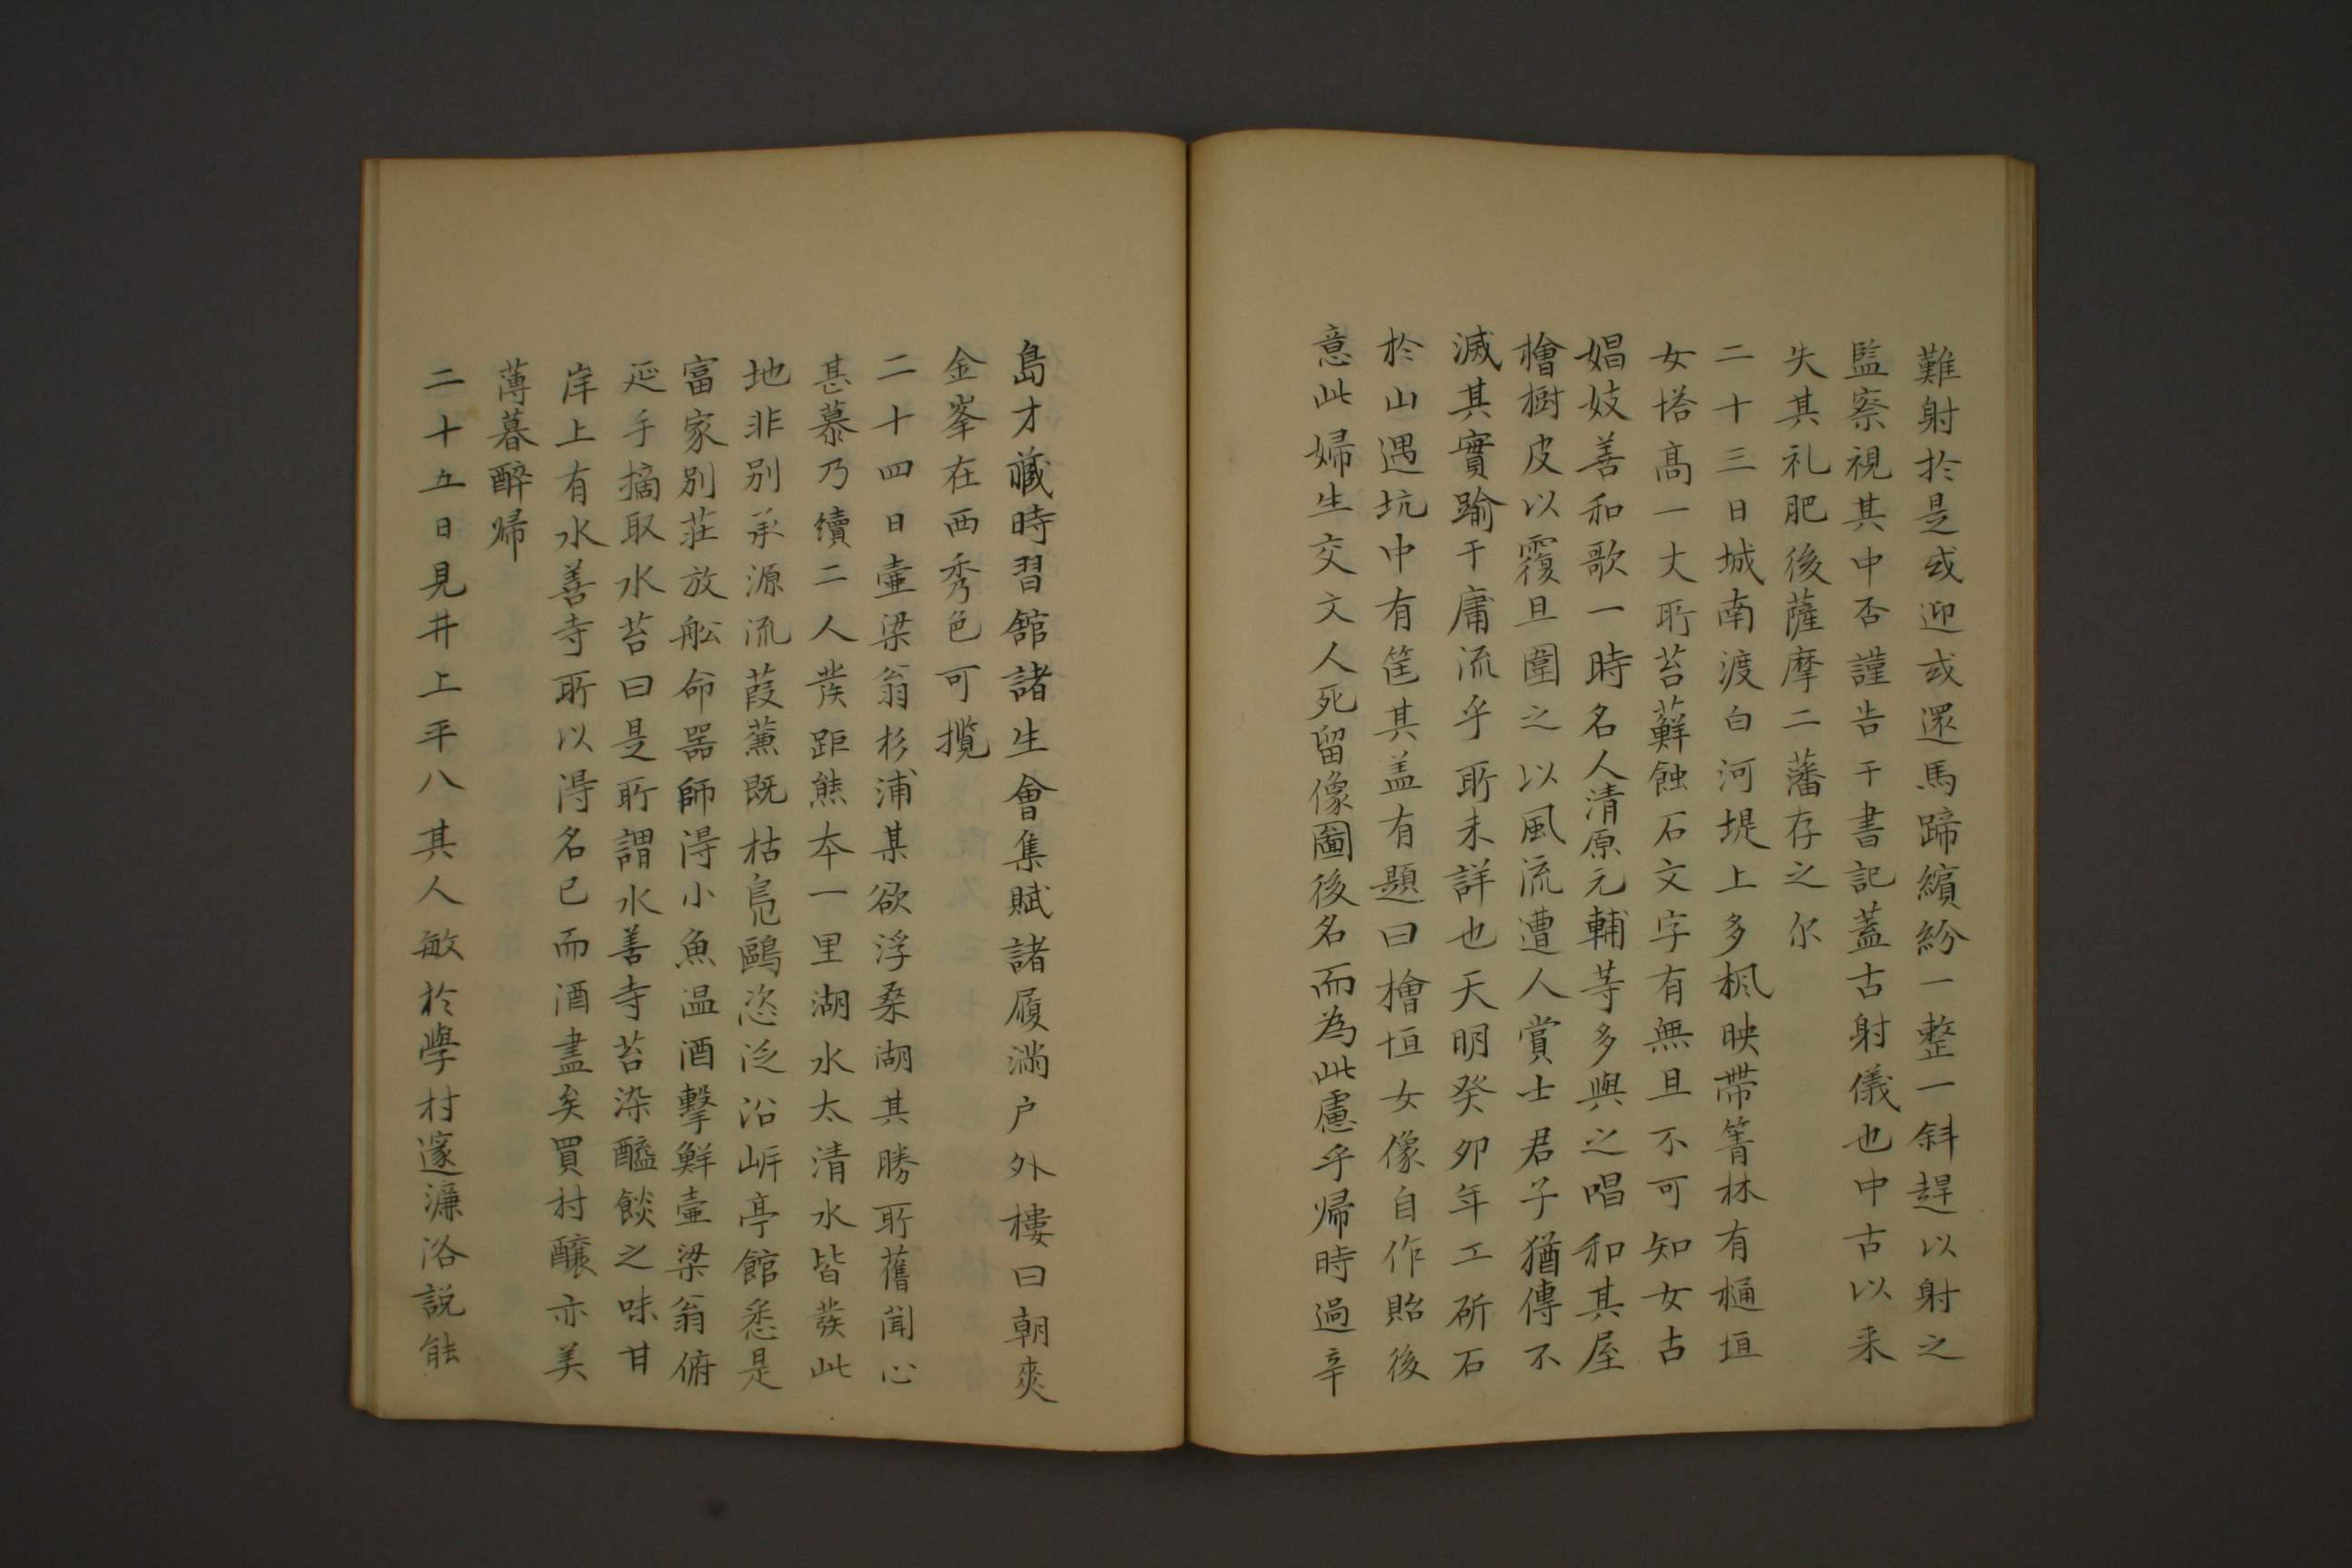 難射於是或迎或還馬蹄繽紛一整一斜趕以射之
監察視其中否謹告于書記蓋古射儀也中古以来
失其礼肥後薩摩二藩存之尓
二十三日城南渡白河堤上多楓映帯篝林有樋垣
女塔高一丈所苔蘚蝕石文字有無且不可知女古
娼妓善和歌一時名人清原元輔等多與之唱和其屋
檜樹皮以覆且圍之以風流遭人賞士君子猶傳不
滅其實踰于庸流乎所未詳也天明癸卯年工斫石
於山遇坑中有筐其盖有題曰檜垣女像自作貽後
意此婦生交文人死留像圖後名而為此慮乎帰時過辛
島才蔵時習舘諸生會集賦諸履満户外樓曰朝爽
金峯在西秀色可攬
二十四日壷梁翁杉浦某欲浮桑湖其勝所舊聞心
甚慕乃續二人発距熊夲一里湖水太清水皆発此
地非別承源流葭蒹既枯鳧鷗恣泛沿岍亭館悉是
富家別荘放舩命噐師淂小魚温酒擊鮮壷梁翁俯
延手摘取水苔曰是所謂水善寺苔染醯餤之味甘
岸上有水善寺所以淂名已而酒盡矣買村醸亦美
薄暮醉帰
二十五日見井上平八其人敏於學村邃濂洛説能